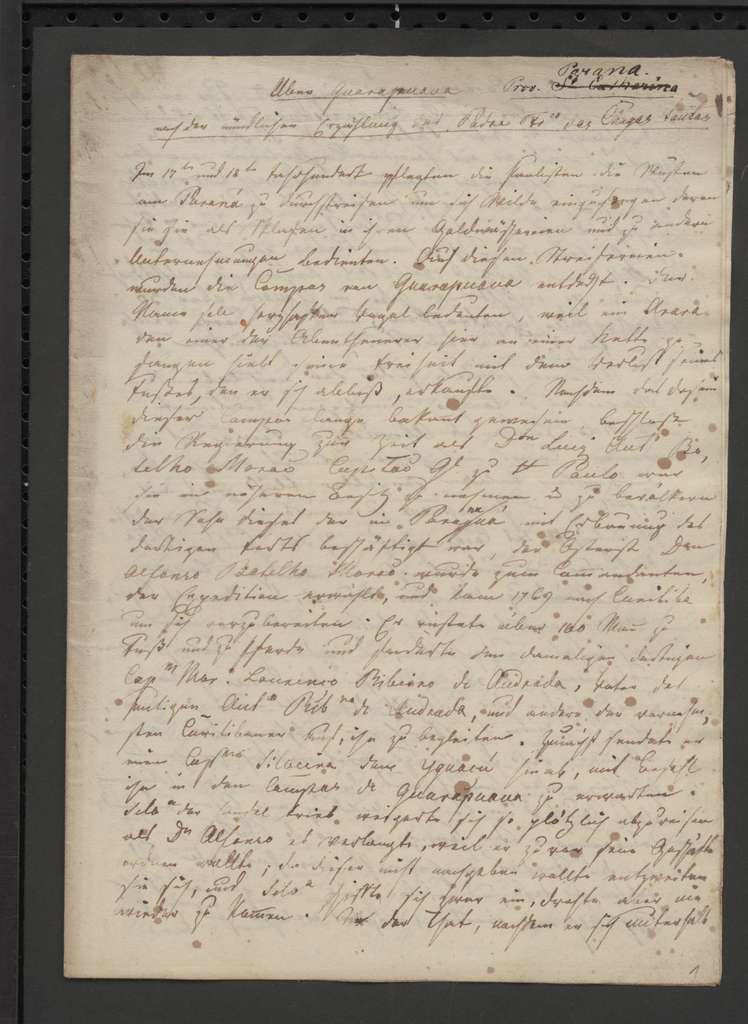 Über Guarapuava Prov. Parana. St Catharina
nach der mündlichen Erzählung des Padre Fr.co das Chagas Santos
Im 17ten und 18ten Jahrhundert pflegten die Paulisten die Wüsten
am Paraná zu durchstreifen um sich Wilde einzufangen deren
sie sie als Sklaven in ihren Goldwäschereien und zu andern
Unternehmungen bedienten. Auf diesen Streifereien
wurden die Campos von Guarapuava entdeckt. Ihr
Name soll Vogel bedeuten, weil ein Arara
den einer der Abentheurer hier an einer Kette ge
fangen hielt seine Freiheit mit dem Verlust seines
Fußes, den er sich abbiß, erkaufte. Nachdem das Dasein
dieser Campos lange bekannt gewesen beschloß
die Regierung zur Zeit als Dom Luiz Ant Bo,
telho Morao Capitao Gl zu St Paulo war
sie in näheren Besitz zu nehmen u zu bevölkern
der Sohn dieses der in Paragua mit Erbauung des
dortigen Forts beschäftigt war, der Dom
Alfonso Botelho Morao wurde zum Commandanten
der Expedition erwählt, und kam 1769 nach Curitiba
um sich vorzubereiten. Er rüstete über 160 Mann zu
Fuß und zu Pferde und forderte den damaligen dortigen
Capm Mor. Lourenco Ribeiro de Andrada, Vater des
heutigen Anto Rib ro de Andrada, und andere der vornehm,
sten Curitibaner auf, ihn zu begleiten. Zunächst sendete er
einen Capm Silveira den Yguacú hinab, mit Befehl
ihn in den Campos de Guarapuava zu erwarten.
der Handel trieb weigerte sich so plötzlich abzureisen
als Dn Alfonso es verlangte, weil er zuvor seine Geschäfte
ordnen wollte; da dieser nicht nachgeben wollte entzweiten
sie sich, und schiffte sich zwar ein, drohte aber nie
wieder zu kommen. In der That, nachdem er sich unterhalb
1